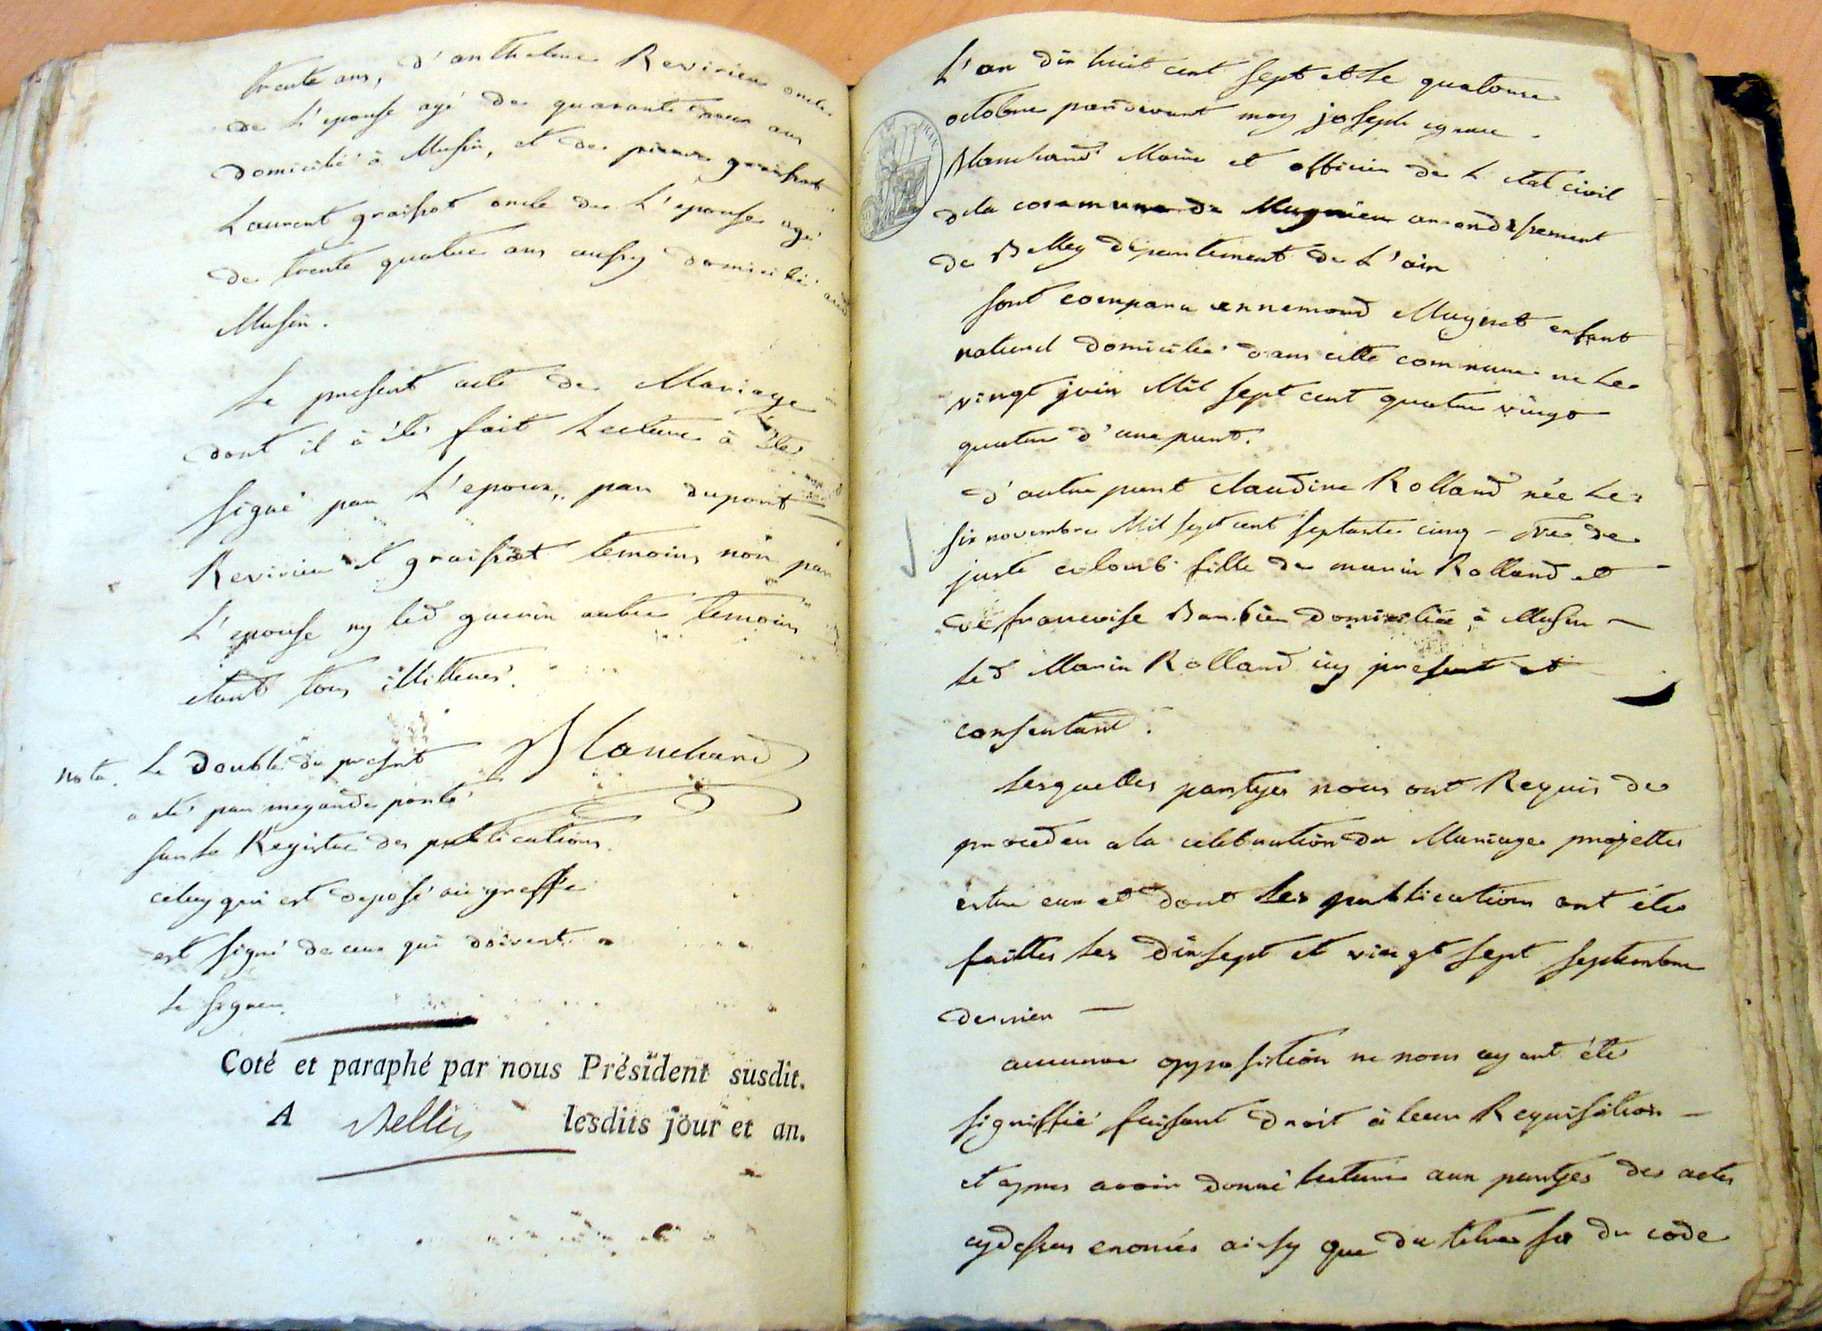 trente ans, d'anthelme Revirieu oncle
de L'epouse agé de quarante neuf ans
domicilié à Musin, et de pierre graissot
Laurent graissot oncle de L'epouse agé
de trente quatre ans aussy domicilié aud
Musin.
Le present acte de Mariage
dont il à été fait Lecture à
signé par L'epoux, par dupont
Revirieu et graissot temoins, non par
L'epouse ny led guerin autre temoin
etant tous illiterés.
Blanchard
nota. Le double du present
a été par megarde porté
sur le Registre des publications
celuy qui est deposé au greffe
est signé de ceux qui doivent
le signer
Coté et paraphé par nous Président susdit.
A Belley lesdits jour et an.
L'an dix huit cent sept et le quatorze
octobre pardevant moy joseph ignace
Blanchard Maire et officier de L'etat civil
dela commune de Magnieu arrondissement
de Belley departement de L'ain
sont comparu ennemond Mugnot enfant
naturel domicilié dans cette commune né Le
vingt juin Mil sept cent quatre vingt
quatre d'une part.
d'autre part claudine Rolland née Le
six novembre Mil sept cent septante cinq - vve de
juste colomb fille de marin Rolland et
de francoise Barbier domiciliée à Musin
Led Marin Rolland icy present et
consentant.
Lesquelles partyes nous ont Requis de
proceder ala celebration du Mariage projetté
entre eux et dont Les publications ont été
faittes les dixsept et vingt sept septembre
dernier
aucune opposition ne nous ayant été
signiffié faisant droit à leur Requisition
et apres avoir donné lecture aux partyes des actes
cydessus enoncés ainsy que du titre six du code